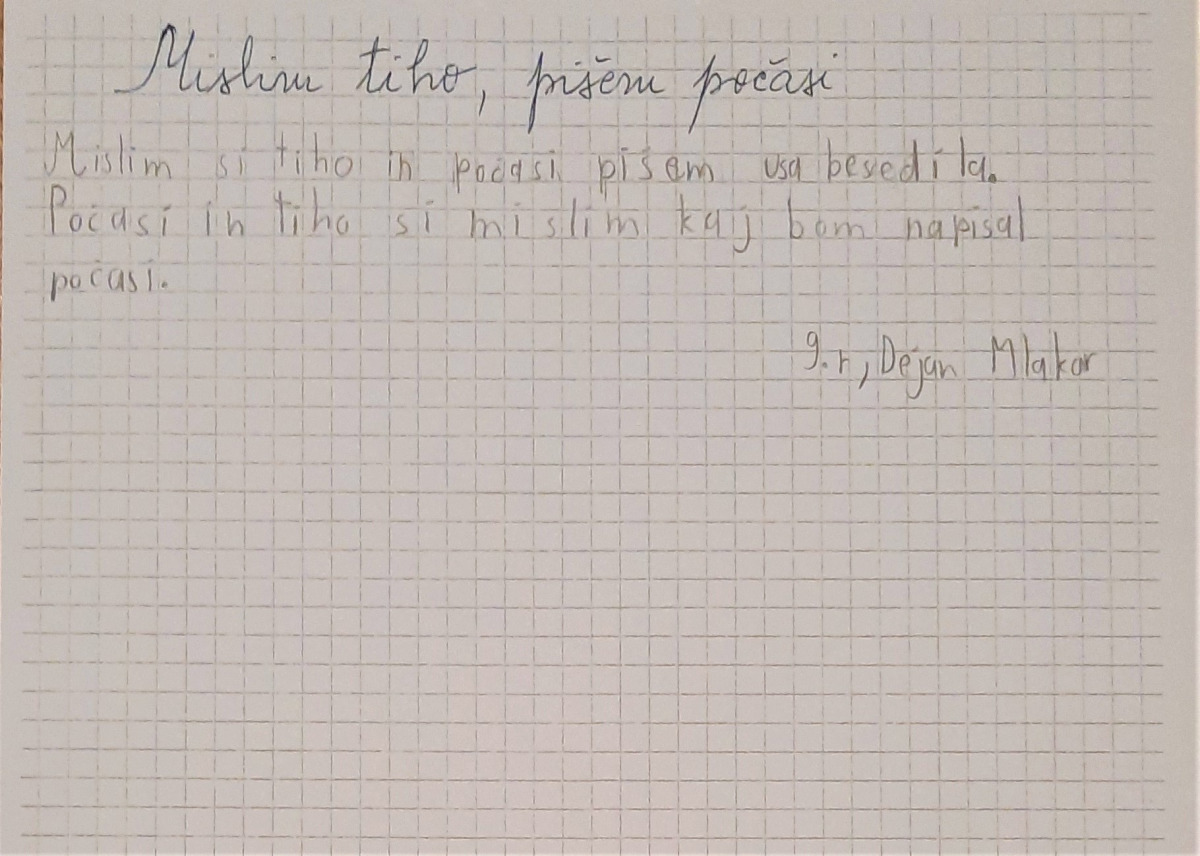 Mislim tiho, pišem počasi
Mislim si tiho in počasi pišem vsa besedila.
Počasi in tiho si mislim kaj bom napisal
počasi.
9.r, Dejan Mlakar